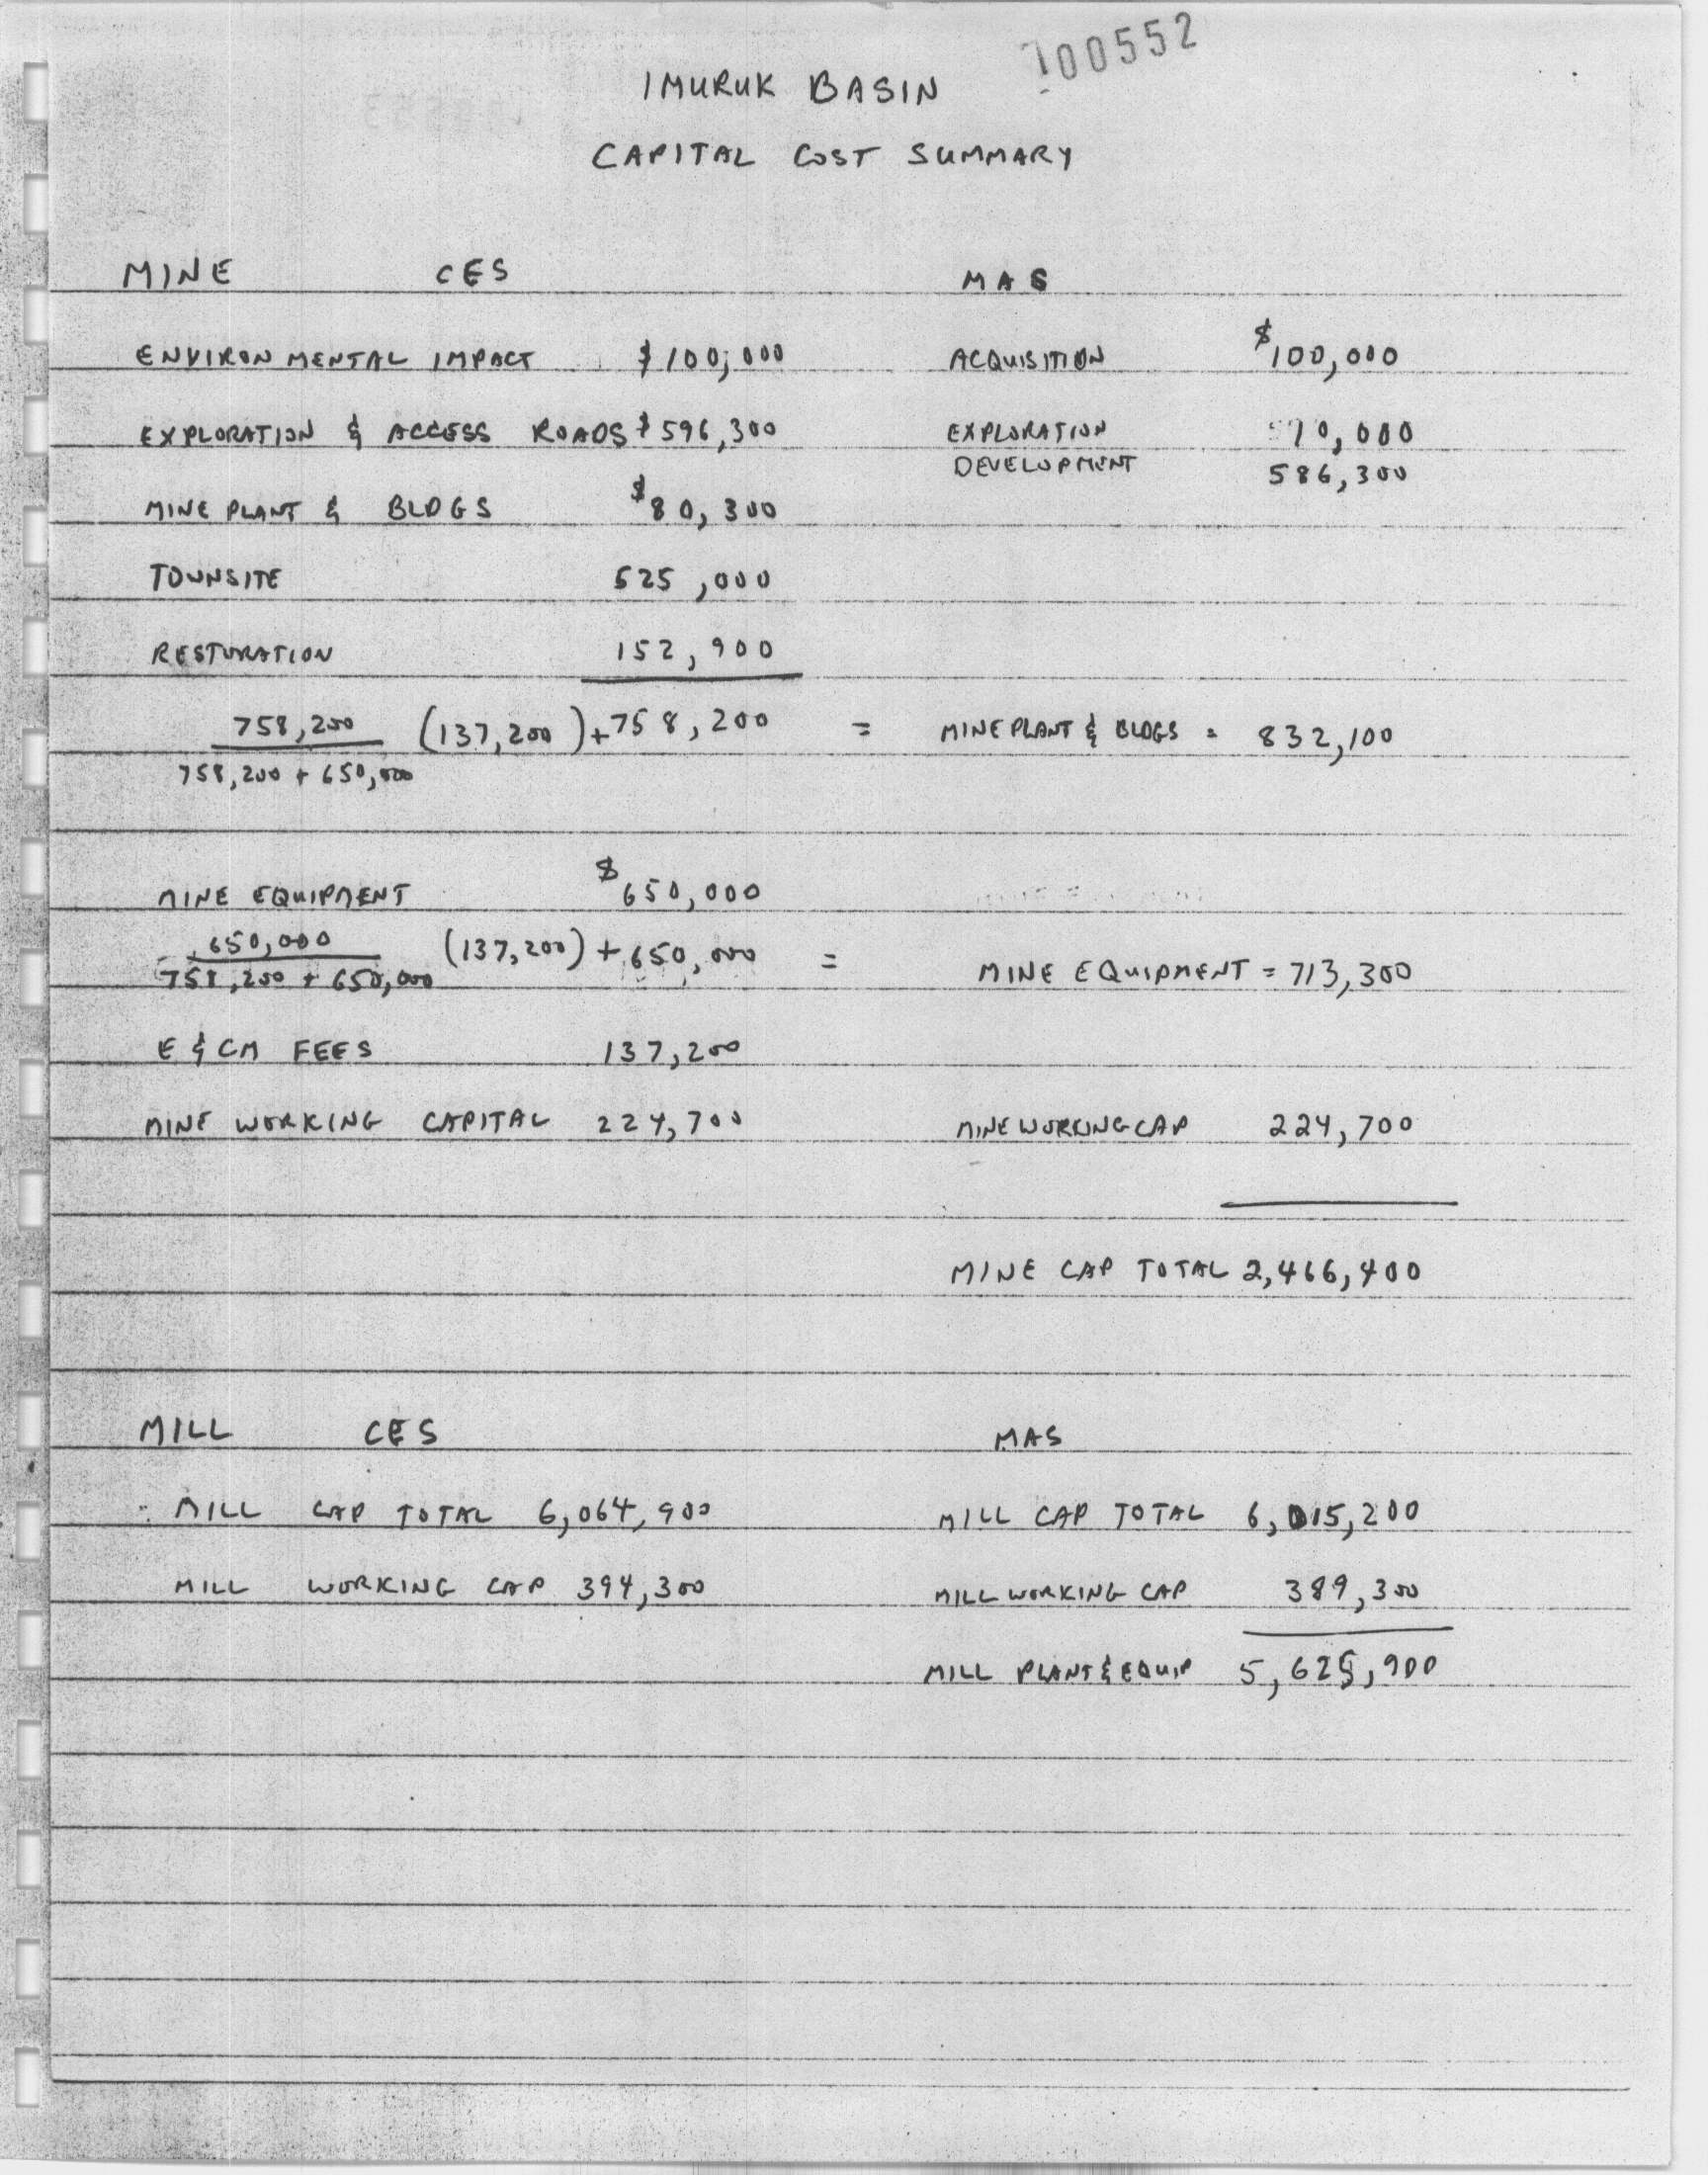 100552
IMURUK BASIN
CAPITAL COST SUMMARY
MINE CES MAS
ENVIRONMENTAL IMPACT $100,000 ACQUISITION $100,000
EXPLORATION & ACCESS ROADS $596,300 EXPLORATION 10,000
DEVELOPMENT 586,300
MINE PLANT & BLDGS $80,300
TOWNSITE 525,000
RESTORATION 152,900
758,200 (137,200) + 758,200 = MINE PLANT & BLDGS = 832,100
758,200 + 650,000
MINE EQUIPMENT $650,000
650,000 (137,200) + 650,000 = MINE EQUIPMENT = 713,300
758,200 + 650,000
E & CM FEES 137,200
MINE WORKING CAPITAL 224,700 MINE WORKING CAP 224,700
MINE CAP TOTAL 2,466,400
MILL CES MAS
MILL CAP TOTAL 6,064,900 MILL CAP TOTAL 6,015,200
MILL WORKING CAP 394,300 MILL WORKING CAP 389,300
MILL PLANT & EQUIP 5,625,900